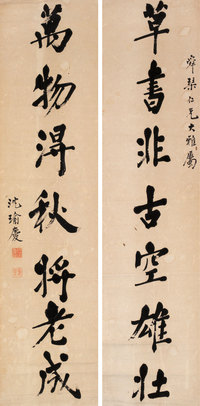 舜琴仁兄大雅屬
草書非古空雄壯
萬物得秋将老成
沈瑜慶